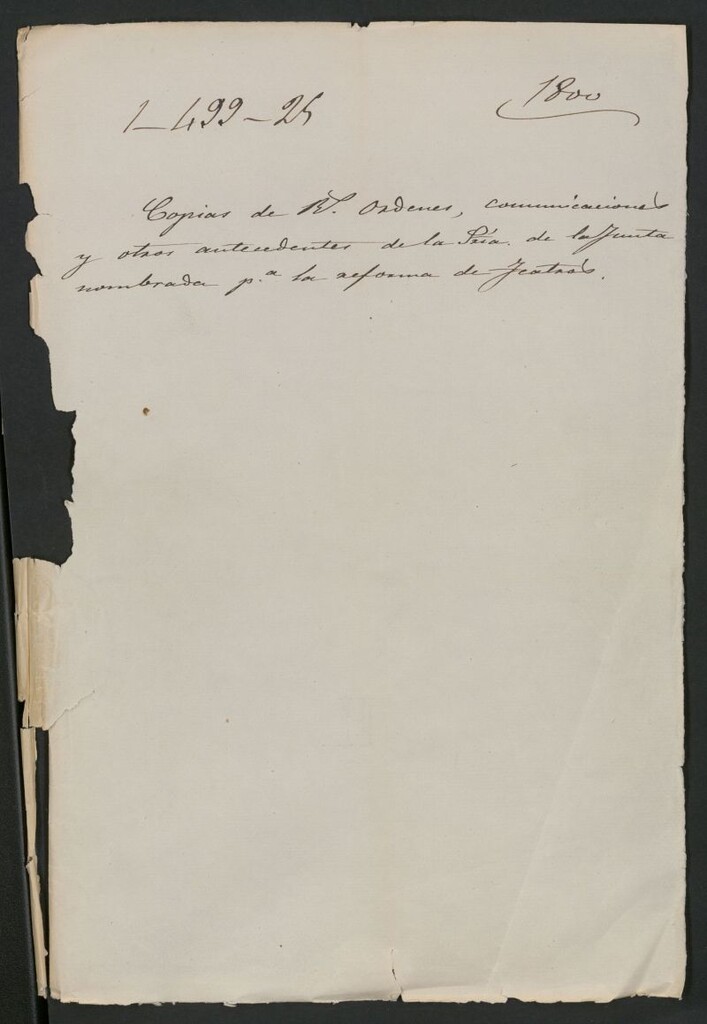 1-499-25
1800
Copias de Rs. Ordenes, comunicaciones
y otros antecedentes de la Sría. de la Junta
nombrada p.a la reforma de Teatros.